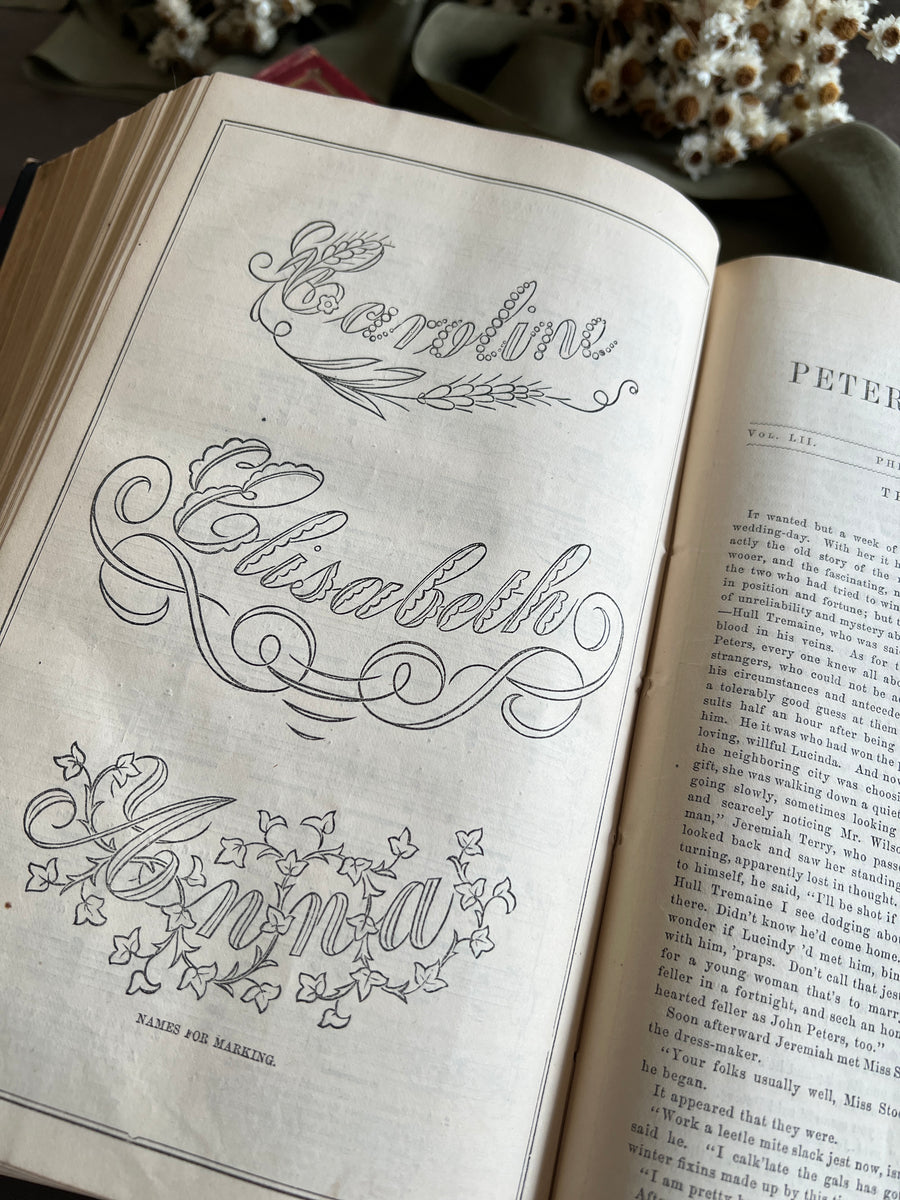 Caroline
Elisabeth
Anna
NAMES FOR MARKING.
PETER
VOL. LII.
PH
T
It wanted but a week of
wedding-day. With her it h
actly the old story of the
wooer, and the fascinating,
the two who had tried to win
in position and fortune; but t
of unreliability and mystery ab
—Hull Tremaine, who was sai
blood in his veins. As for t
Peters, every one knew all abo
strangers, who could not be a
his circumstances and antecede
a tolerably good guess at them
sults half an hour after being
him. He it was who had won the
loving, willful Lucinda. And now
the neighboring city was choosi
gift, she was walking down a quiet
going slowly, sometimes looking
and scarcely noticing Mr. Wilso
man," Jeremiah Terry, who pass
looked back and saw her standing
turning, apparently lost in thought.
to himself, he said, "I'll be shot if
Hull Tremaine I see dodging abou
there. Didn't know he'd come home.
wonder if Lucindy 'd met him, bin
with him, 'praps. Don't call that jest
for a young woman that's to marr
feller in a fortnight, and sech an hon
hearted feller as John Peters, too."
Soon afterward Jeremiah met Miss S
the dress-maker.
"Your folks usually well, Miss Sto
he began.
It appeared that they were.
"Work a leetle mite slack jest now, is
said he. "I calk'late the gals has go
winter fixins made up by this
"I am pretty
Afte